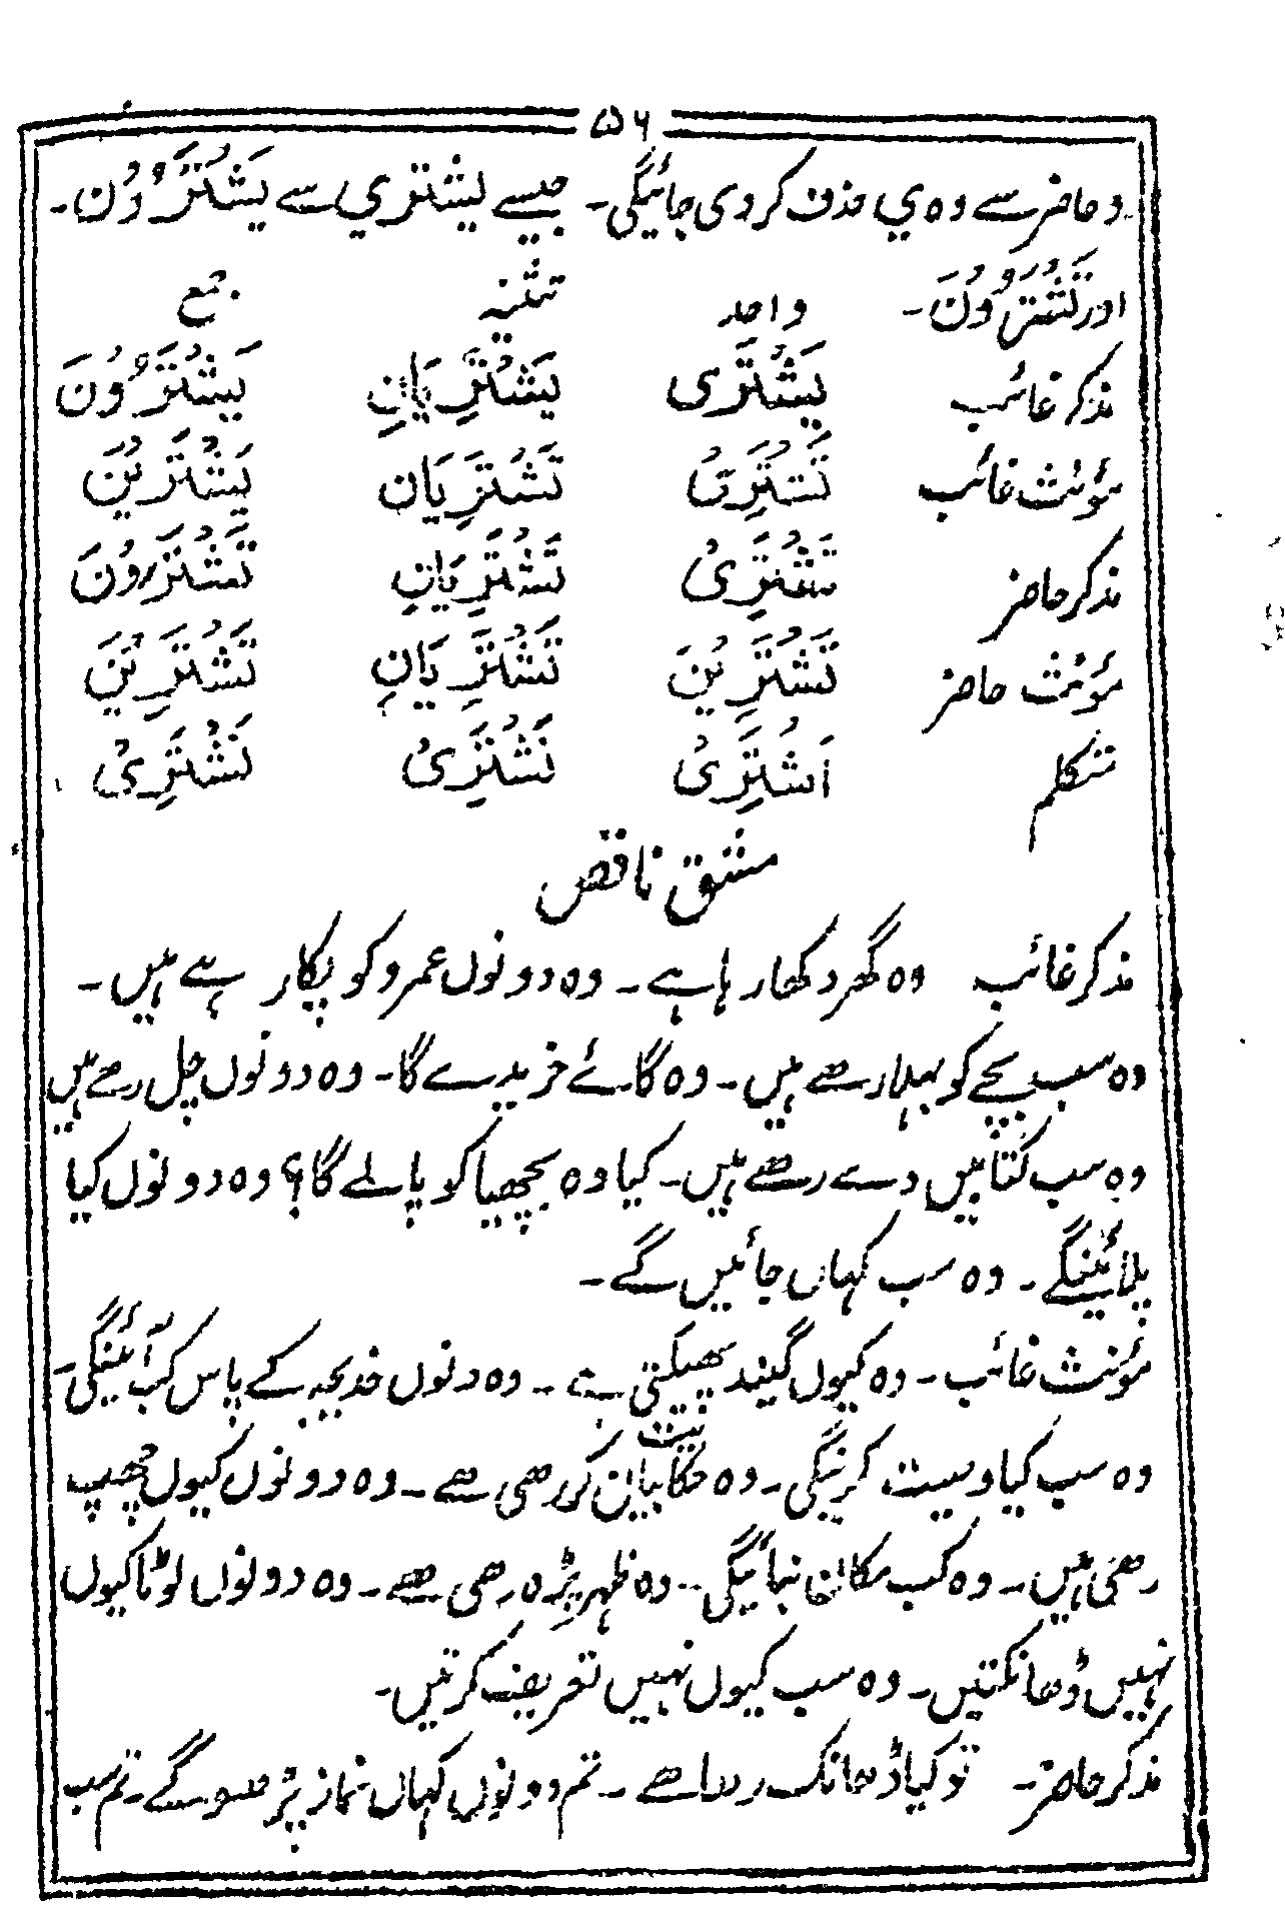 ۵۶
و حاضر سے وہ ي حذف کر دی جائیگی۔ جیسے یشتري سے یَشْتَرُوْنَ۔
اور تَشْتَرُوْنَ۔ واحد تثنیہ جمع
مذکر غائب یَشْتَرِی یَشْتَرِیَانِ یَشْتَرُوْنَ
مؤنث غائب تَشْتَرِیْ تَشْتَرِیَان یَشْتَرِیْنَ
مذکر حاضر تَشْتَرِیْ تَشْتَرِیَانِ تَشْتَرُوْنَ
مؤنث حاضر تَشْتَرِیْنَ تَشْتَرِیَانِ تَشْتَرِیْنَ
متکلم اَشْتَرِیْ نَشْتَرِیْ نَشْتَرِیْ
مشق ناقص
مذکر غائب وہ گھر دکھا رہا ہے۔ وہ دونوں عمرو کو پکار رہے ہیں۔
وہ سب بچے کو بہلا رہے ہیں۔ وہ گائے خریدے گا۔ وہ دونوں چل رہے ہیں
وہ سب کتابیں دے رہے ہیں۔ کیا وہ بچھیا کو پالے گا؟ وہ دونوں کیا
پلائینگے۔ وہ سب کہاں جائیں گے۔
مؤنث غائب۔ وہ کیوں گیند پھینکتی ہے۔ وہ دونوں خدیجہ کے پاس کب آئینگی۔
وہ سب کیا وصیت کرینگی۔ وہ حکایت بیان کر رھی ھے۔ وہ دونوں کیوں چھپ
رھی ہیں۔ وہ کب مکان بنائیگی۔ وہ ظہر پڑہ رھی ھے۔ وہ دونوں لوٹا کیوں
نہیں ڈھانکتیں۔ وہ سب کیوں نہیں تعریف کرتیں۔
مذکر حاضر۔ تو کیا ڈھانک رہا ھے۔ تم دونوں کہاں نماز پڑھو گے۔ تم سب